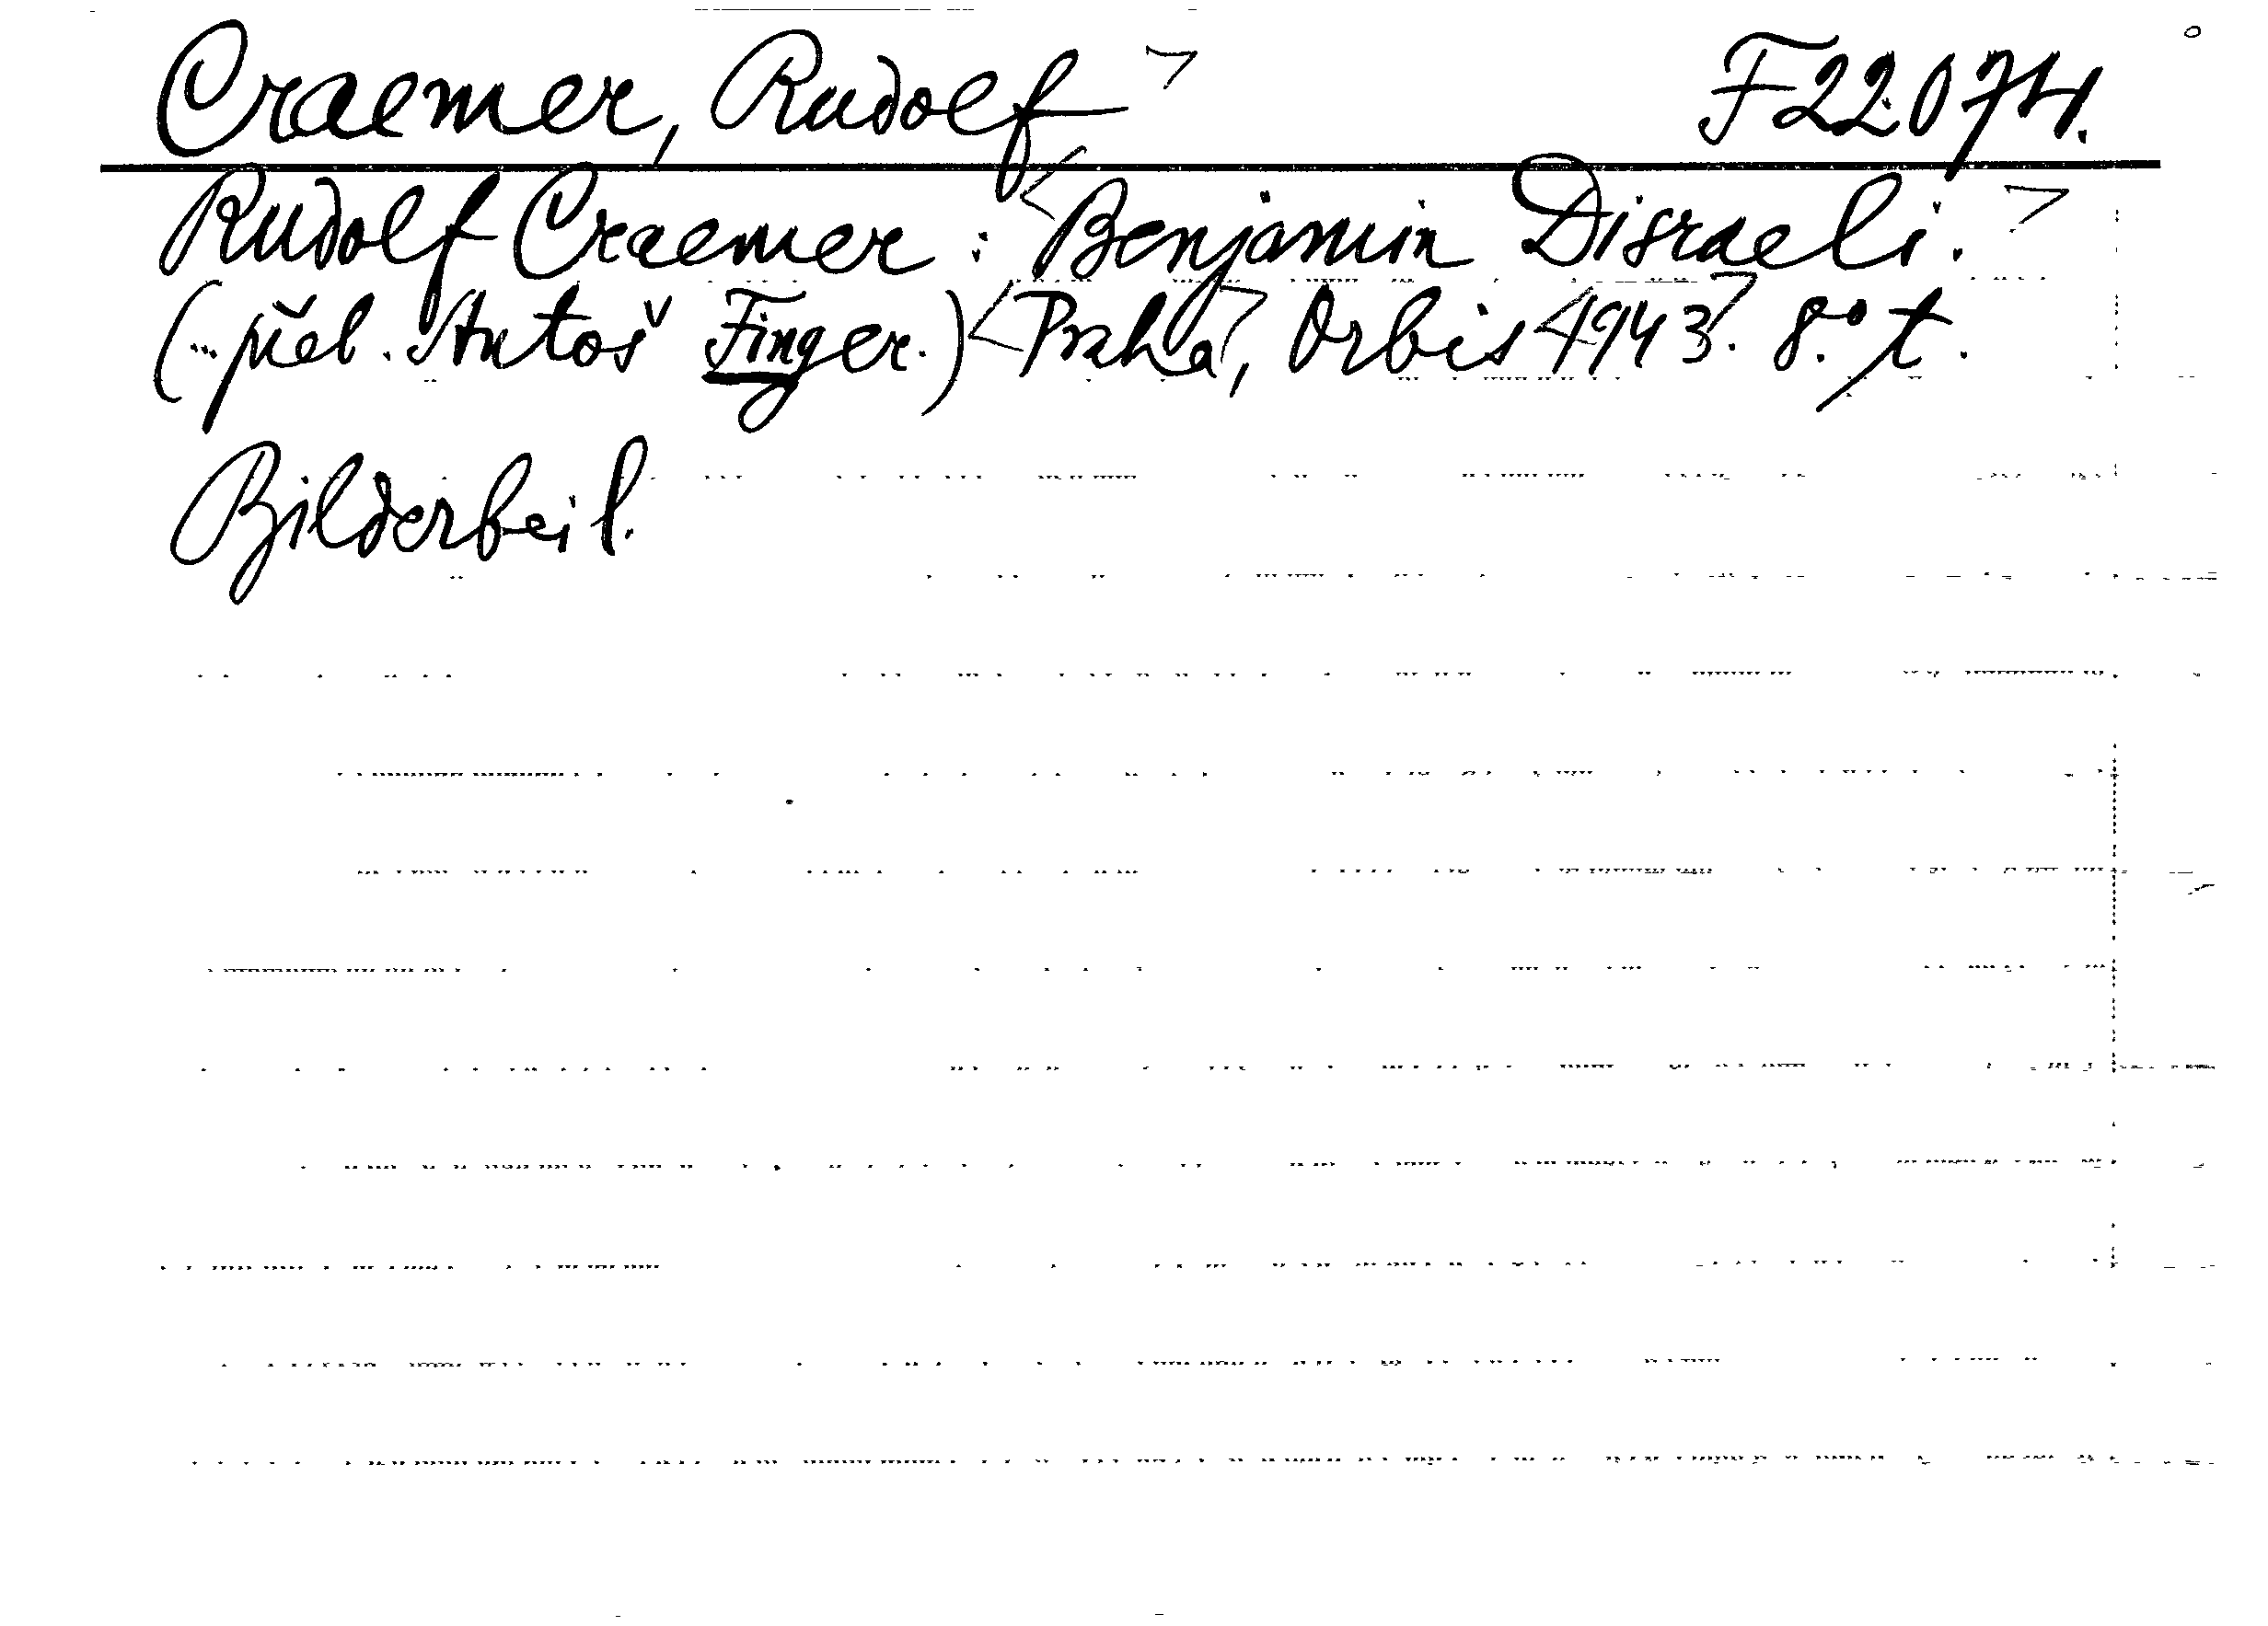 Craemer, Rudolf F22074.
Rudolf Craemer: Benjamin Disraeli.
(...přel. Antoš Finger.) Praha, Orbis 1943. 8.° t.
Bilderbeil.